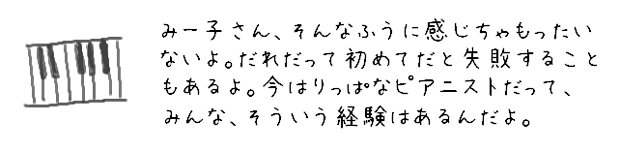 みー子さん、そんなふうに感じちゃもったい
ないよ。だれだって初めてだと失敗すること
もあるよ。今はりっぱなピアニストだって、
みんな、そういう経験はあるんだよ。